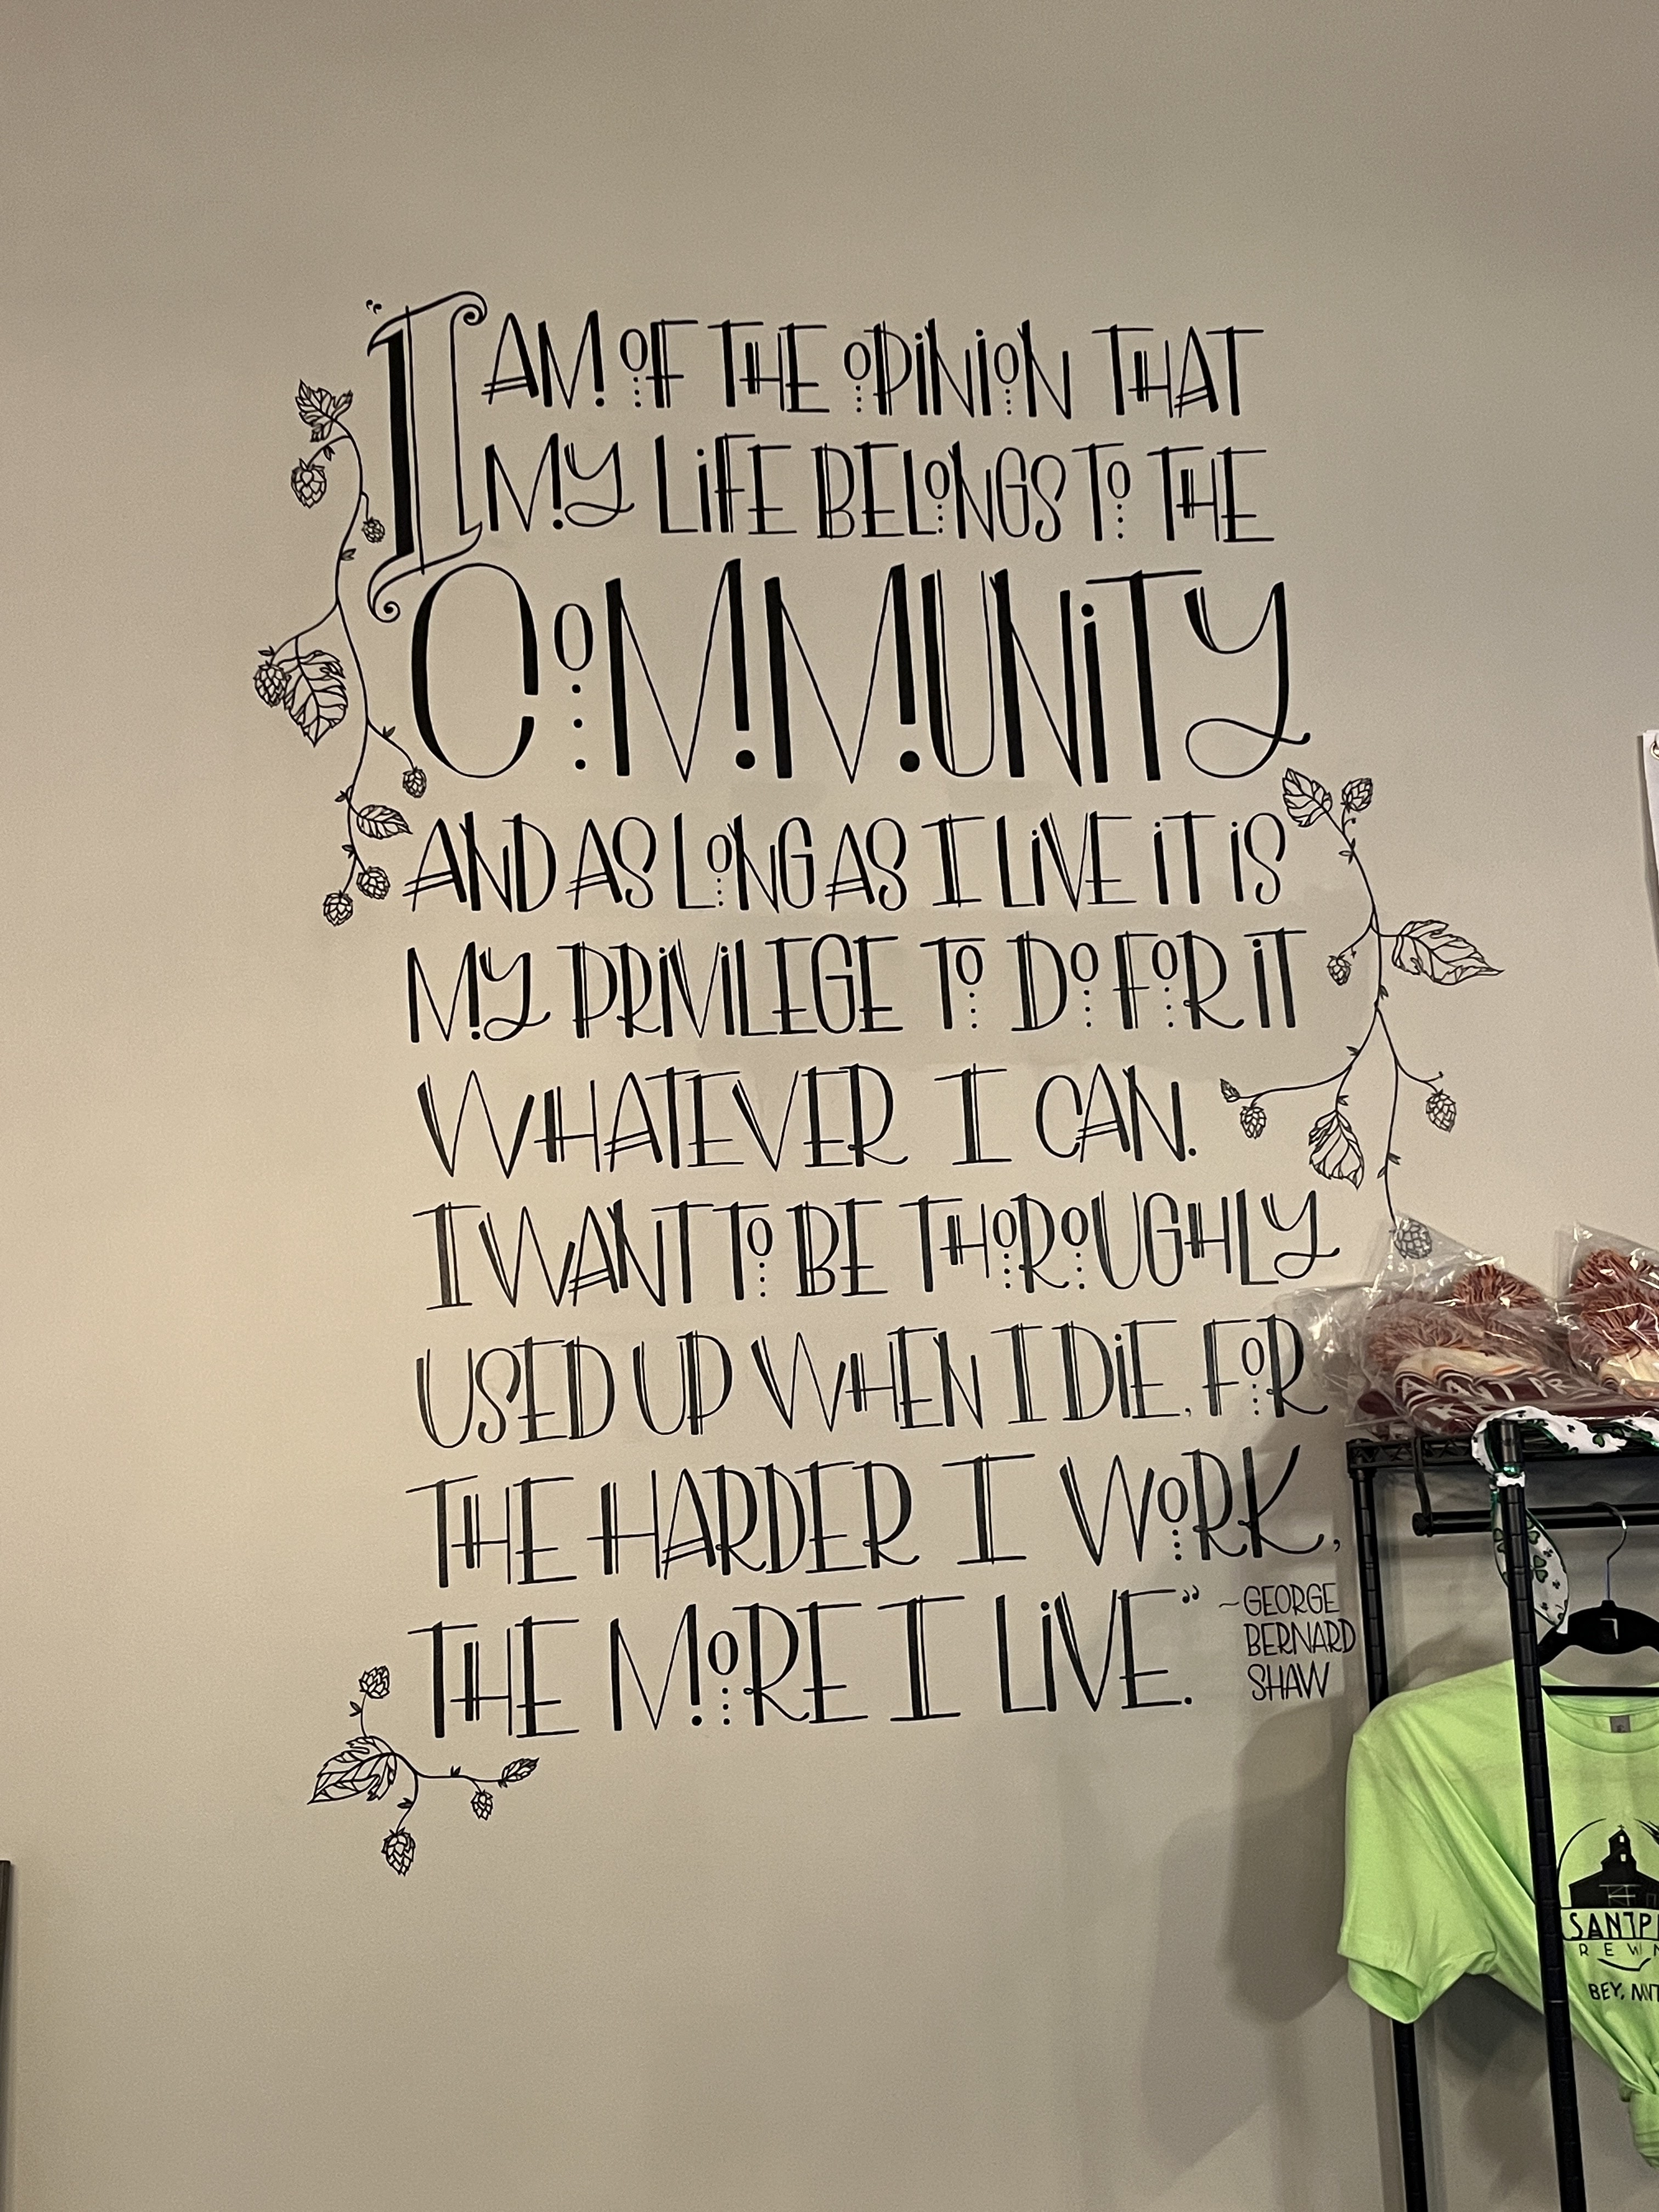 "I AM OF THE OPINION THAT
MY LIFE BELONGS TO THE
COMMUNITY
AND AS LONG AS I LIVE IT IS
MY PRIVILEGE TO DO FOR IT
WHATEVER I CAN.
I WANT TO BE THOROUGHLY
USED UP WHEN I DIE, FOR
THE HARDER I WORK,
THE MORE I LIVE." ~GEORGE
BERNARD
SHAW